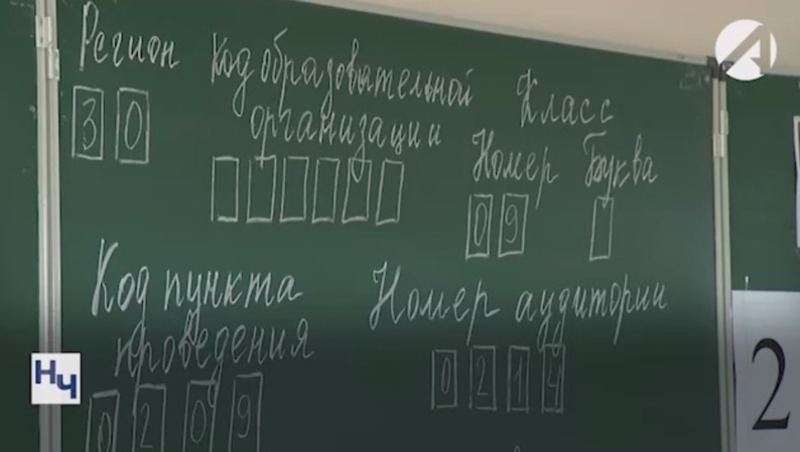 Регион
Код образовательной
организации
Класс
30
Номер
Буква
09
Код пункта
проведения
Номер аудитории
0209
0214
2
НЧ